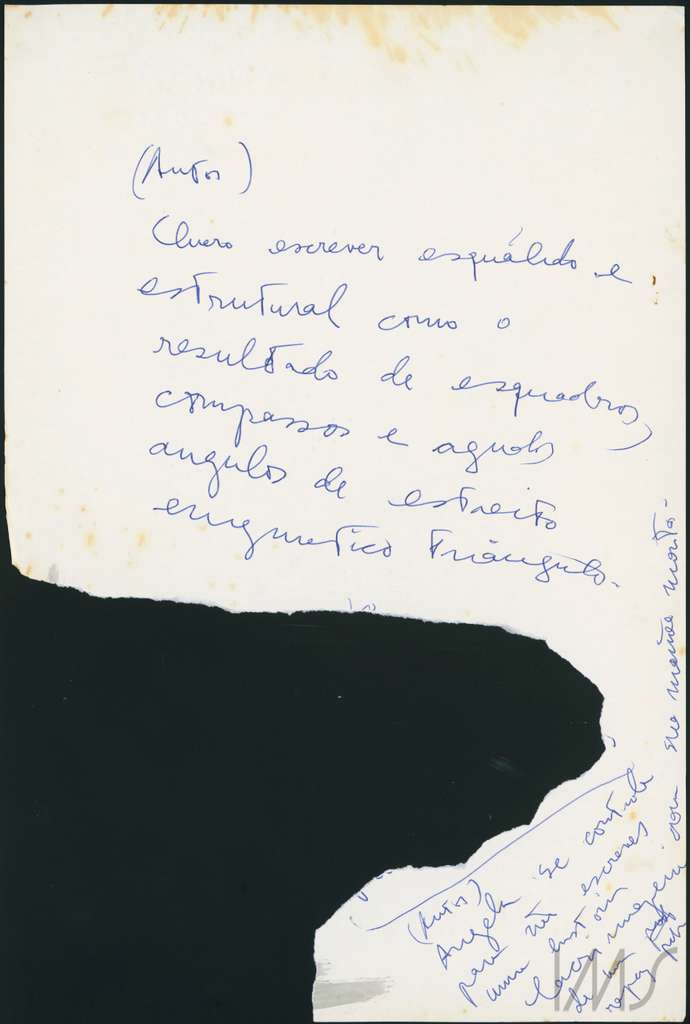 (Autor)
Quero escrever esquálido e
estrutural como o
resultado de esquadros,
compassos e agudos
angulos de estreito
enigmatico triângulo.
(Autor)
Angela se controla
para não escrever
uma história
lacrimogenia
de um
rapaz
sua mãe morta.
IMS